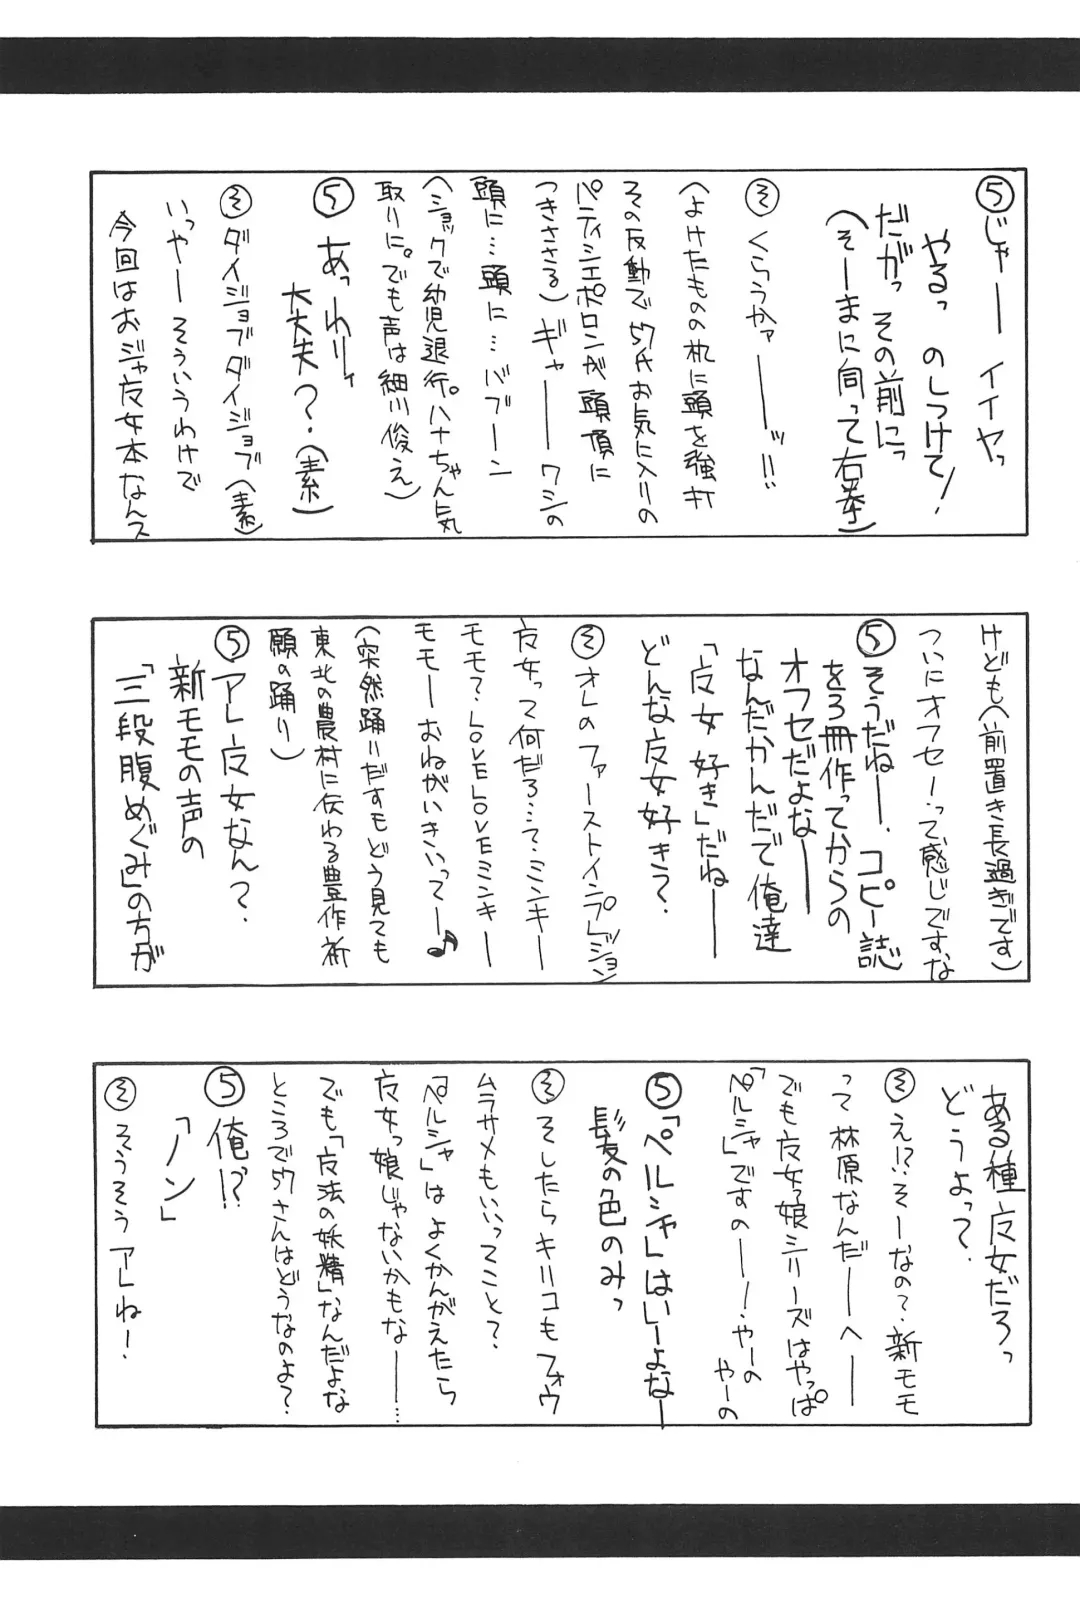 ⑤じゃーー　イイヤっ
やるっ　のしつけて！
だがっ　その前にっ
（そーまに向って右拳）
㋞くらうかァーーッ!!
（よけたものの机に頭を強打
その反動で57氏お気に入りの
パティシエポロンが頭頂に
つきささる）ギャーーワシの
頭に…頭に…バブーン
（ショックで幼児退行。ハナちゃん気
取りに。でも声は細川俊え）
⑤あっわりィ
大丈夫？．（素）
㋞ダイジョブダイジョブ（素）
いっやーーそういうわけで
今回はおジャ女本なんス
けども（前置き長過ぎです）
ついにオフセー．って感じですな
⑤そうだねー．コピー誌
を3冊作ってからの
オフセだよなーー
なんだかんだで俺達
「女好き」だねーー
どんな女好き？．
㋞オレのファーストインプレッション
女って何だろ…？ミンキー
モモ？．LOVE LOVEミンキー
モモーおねがいきいってー♪
（突然踊りだすもどう見ても
東北の農村に伝わる豊作祈
願の踊り）
⑤アレ女なん？．
新モモの声の
「三段腹めぐみ」の方が
ある種女だろっ
どうよっ？．
㋞え!?そーなの？新モモ
って林原なんだーーへーー
でも女っ娘シリーズはやっぱ
「ペルシャ」ですのーー．やーの
やーの
⑤「ペルシャ」はいーよなー
髪の色のみっ
㋞そしたらキリコもフォウ
ムラサメもいいってこと？
「ペルシャ」はよくかんがえたら
女っ娘じゃないかもなーー…
でも「法の妖精」なんだよな
ところで57さんはどうなのよ？
⑤俺!?
「ノン」
㋞そうそうアレねー．